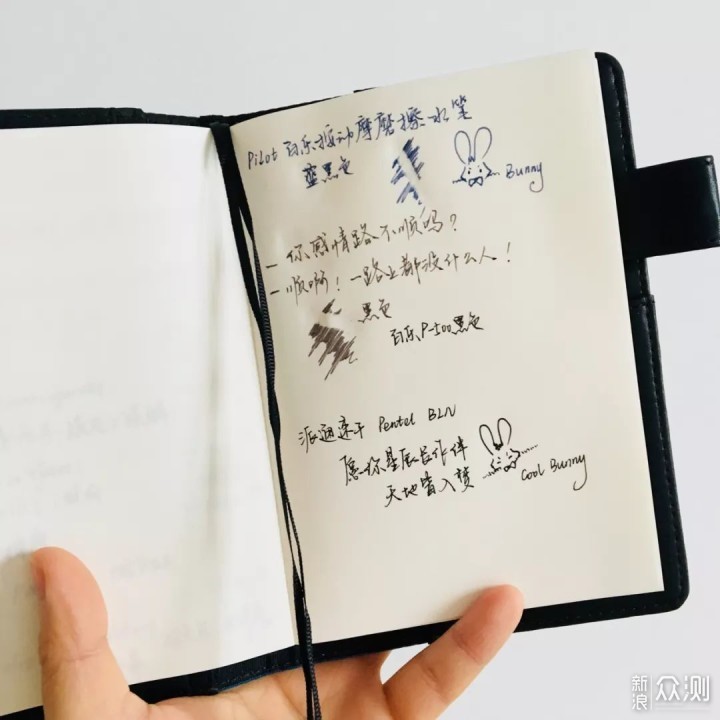 Pilot 百乐按动摩磨擦水笔
蓝黑色
Bunny
- 你感情路不顺吗？
- 顺啊！一路上都没什么人！
黑色
百乐P-500黑色
派通速干 Pentel BLN
愿你星辰长作伴
天地皆入梦
Cool Bunny
新浪众测